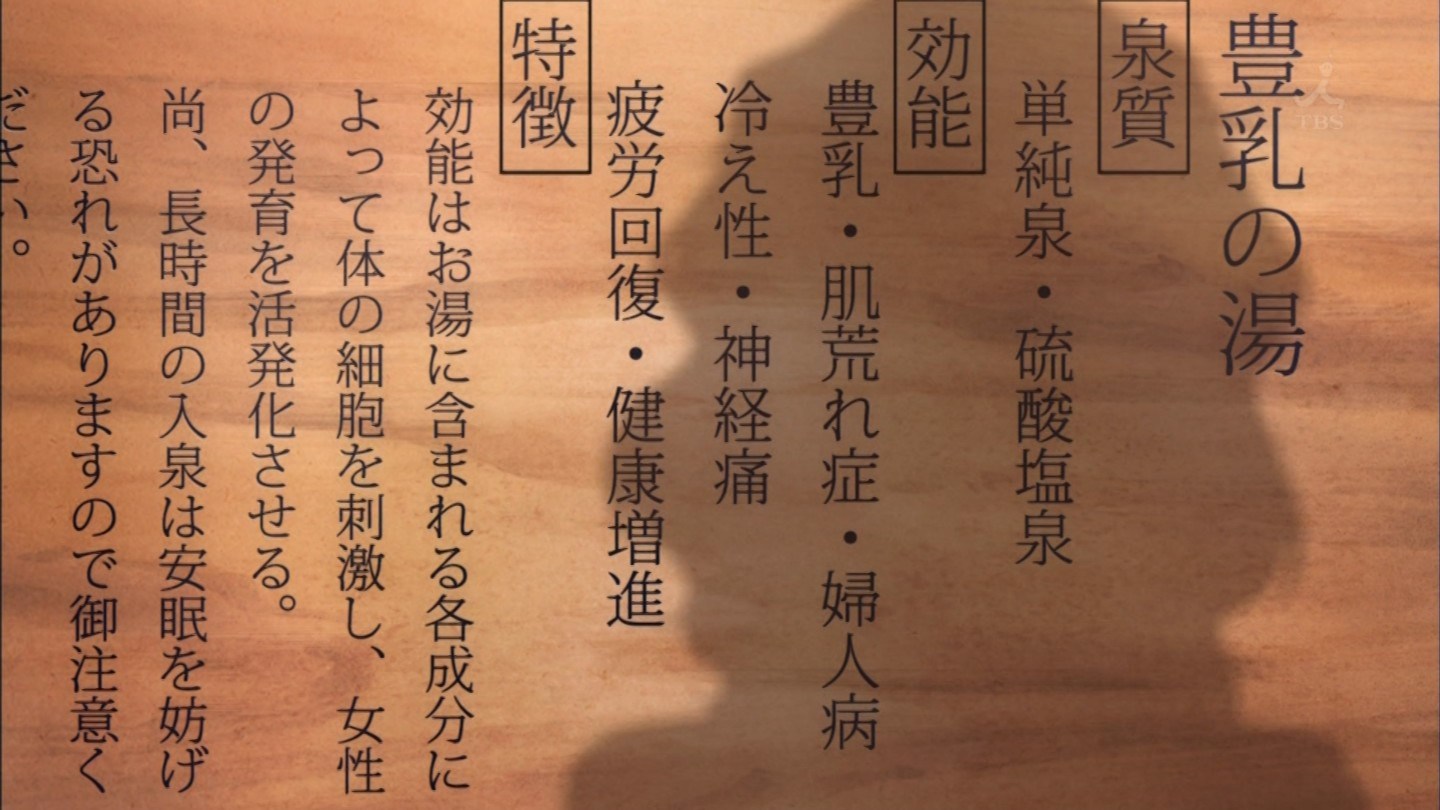 豊乳の湯
泉質
単純泉・硫酸塩泉
効能
豊乳・肌荒れ症・婦人病
冷え性・神経痛
疲労回復・健康増進
特徴
効能はお湯に含まれる各成分に
よって体の細胞を刺激し、女性
の発育を活発化させる。
尚、長時間の入泉は安眠を妨げ
る恐れがありますので御注意く
ださい。
TBS